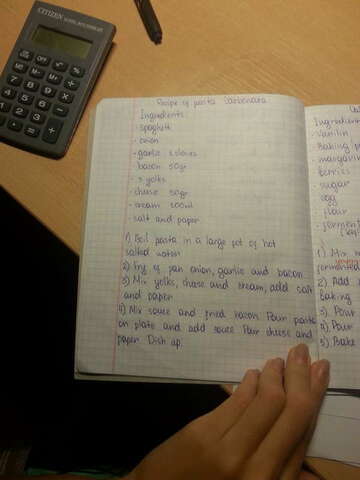 CITIZEN
Recipe of pasta Carbonara
Ingredients:
- spaghetti
- onion
- garlic 2 cloves
- bacon 50gr
- 3 yolks
- cheese 50gr
- cream 200ml
- salt and paper
1) Boil pasta in a large pot of hot
salted water
2) Fry of pan onion, garlic and bacon
3) Mix yolks, chese and cream, add salt
and paper
4) Mix sauce and fried bacon Pour pasta
on plate and add sauce Pour cheese and
paper. Dish up.
Ingredients
- Vanilin
- Baking
- margarin
- Berries
- sugar
- egg
- flour
1) Mix
2) Add
Baking
3) Pour
4) Pour
5) Bake